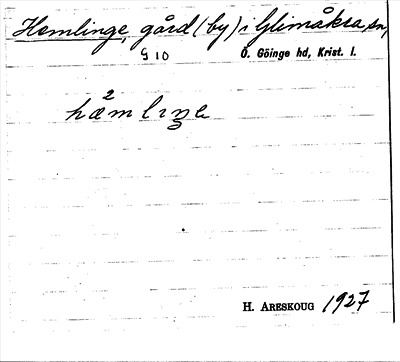 Hemlinge, gård (by) i Glimåkra sn,
G 10 Ö. Göinge hd, Krist. l.
hæ²mlıŋe
H. Areskoug 1927